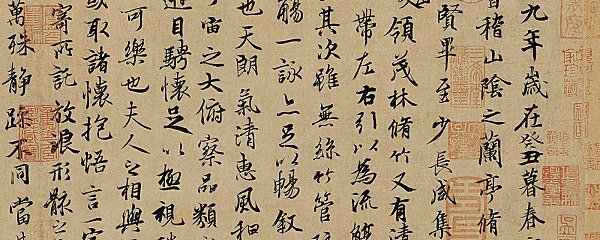 九年歲在癸丑暮春
稽山陰之蘭亭脩
賢畢至少長咸集
領茂林脩竹又有清
帶左右引以為流觴
其次雖無絲竹管
觴一詠亦足以暢敘
也天朗氣清惠風和
宙之大俯察品類
遊目騁懷足以極視
可樂也夫人之相與
或取諸懷抱悟言一室
寄所託放浪形骸之
萬殊靜躁不同當其